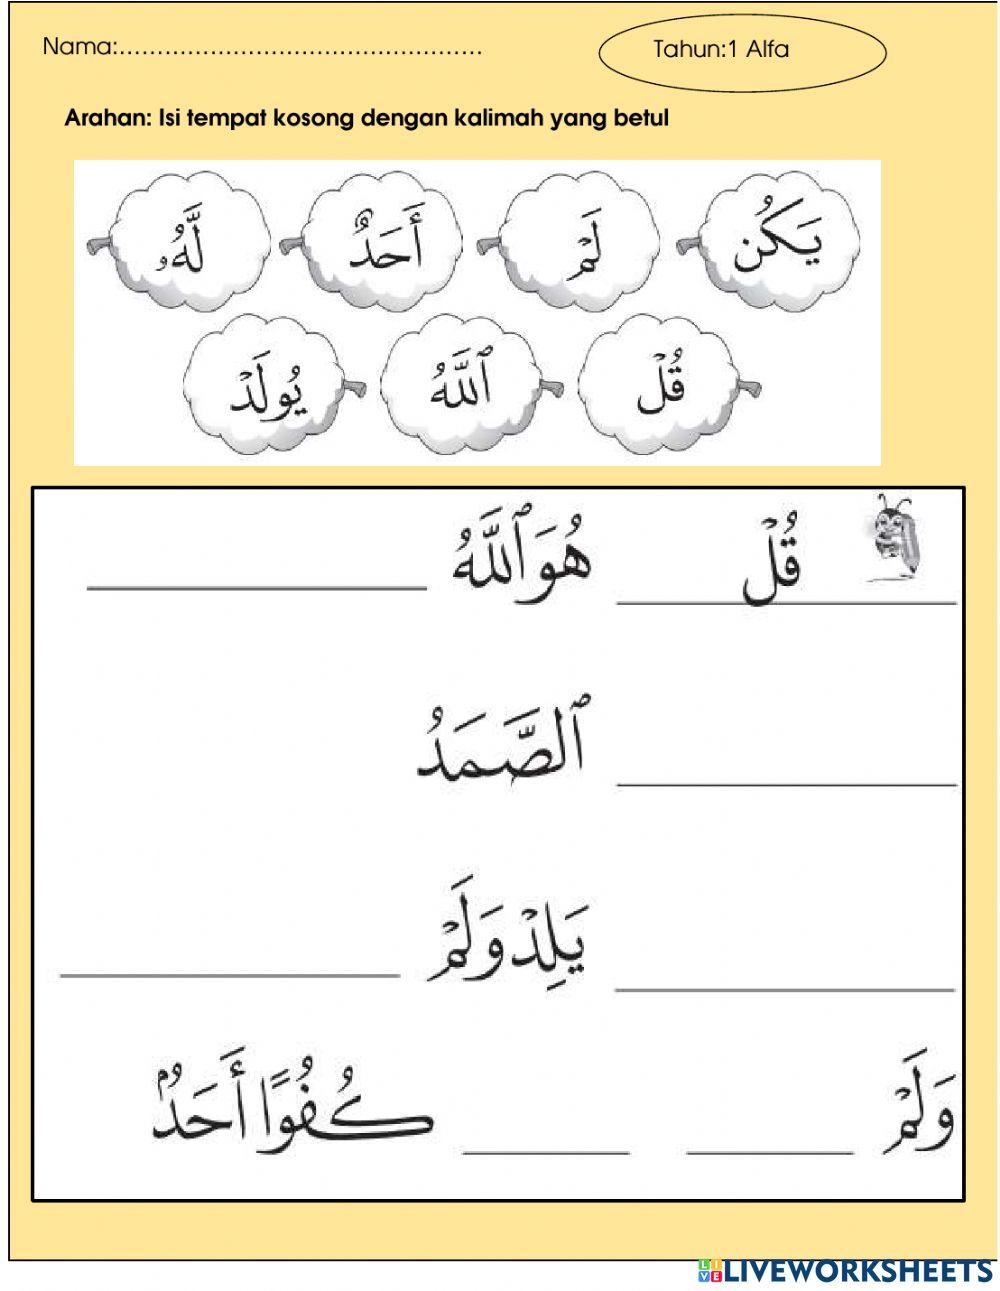 Nama:................................................ Tahun:1 Alfa
Arahan: Isi tempat kosong dengan kalimah yang betul
يَكُن لَمْ أَحَدٌ لَّهُۥ
قُلْ ٱللَّهُ يُولَدْ
قُلْ هُوَ ٱللَّهُ ____________
____________ ٱلصَّمَدُ
____________ يَلِدْ وَلَمْ ____________
وَلَمْ ______ ______ كُفُوًا أَحَدٌۢ
LIVE LIVEWORKSHEETS